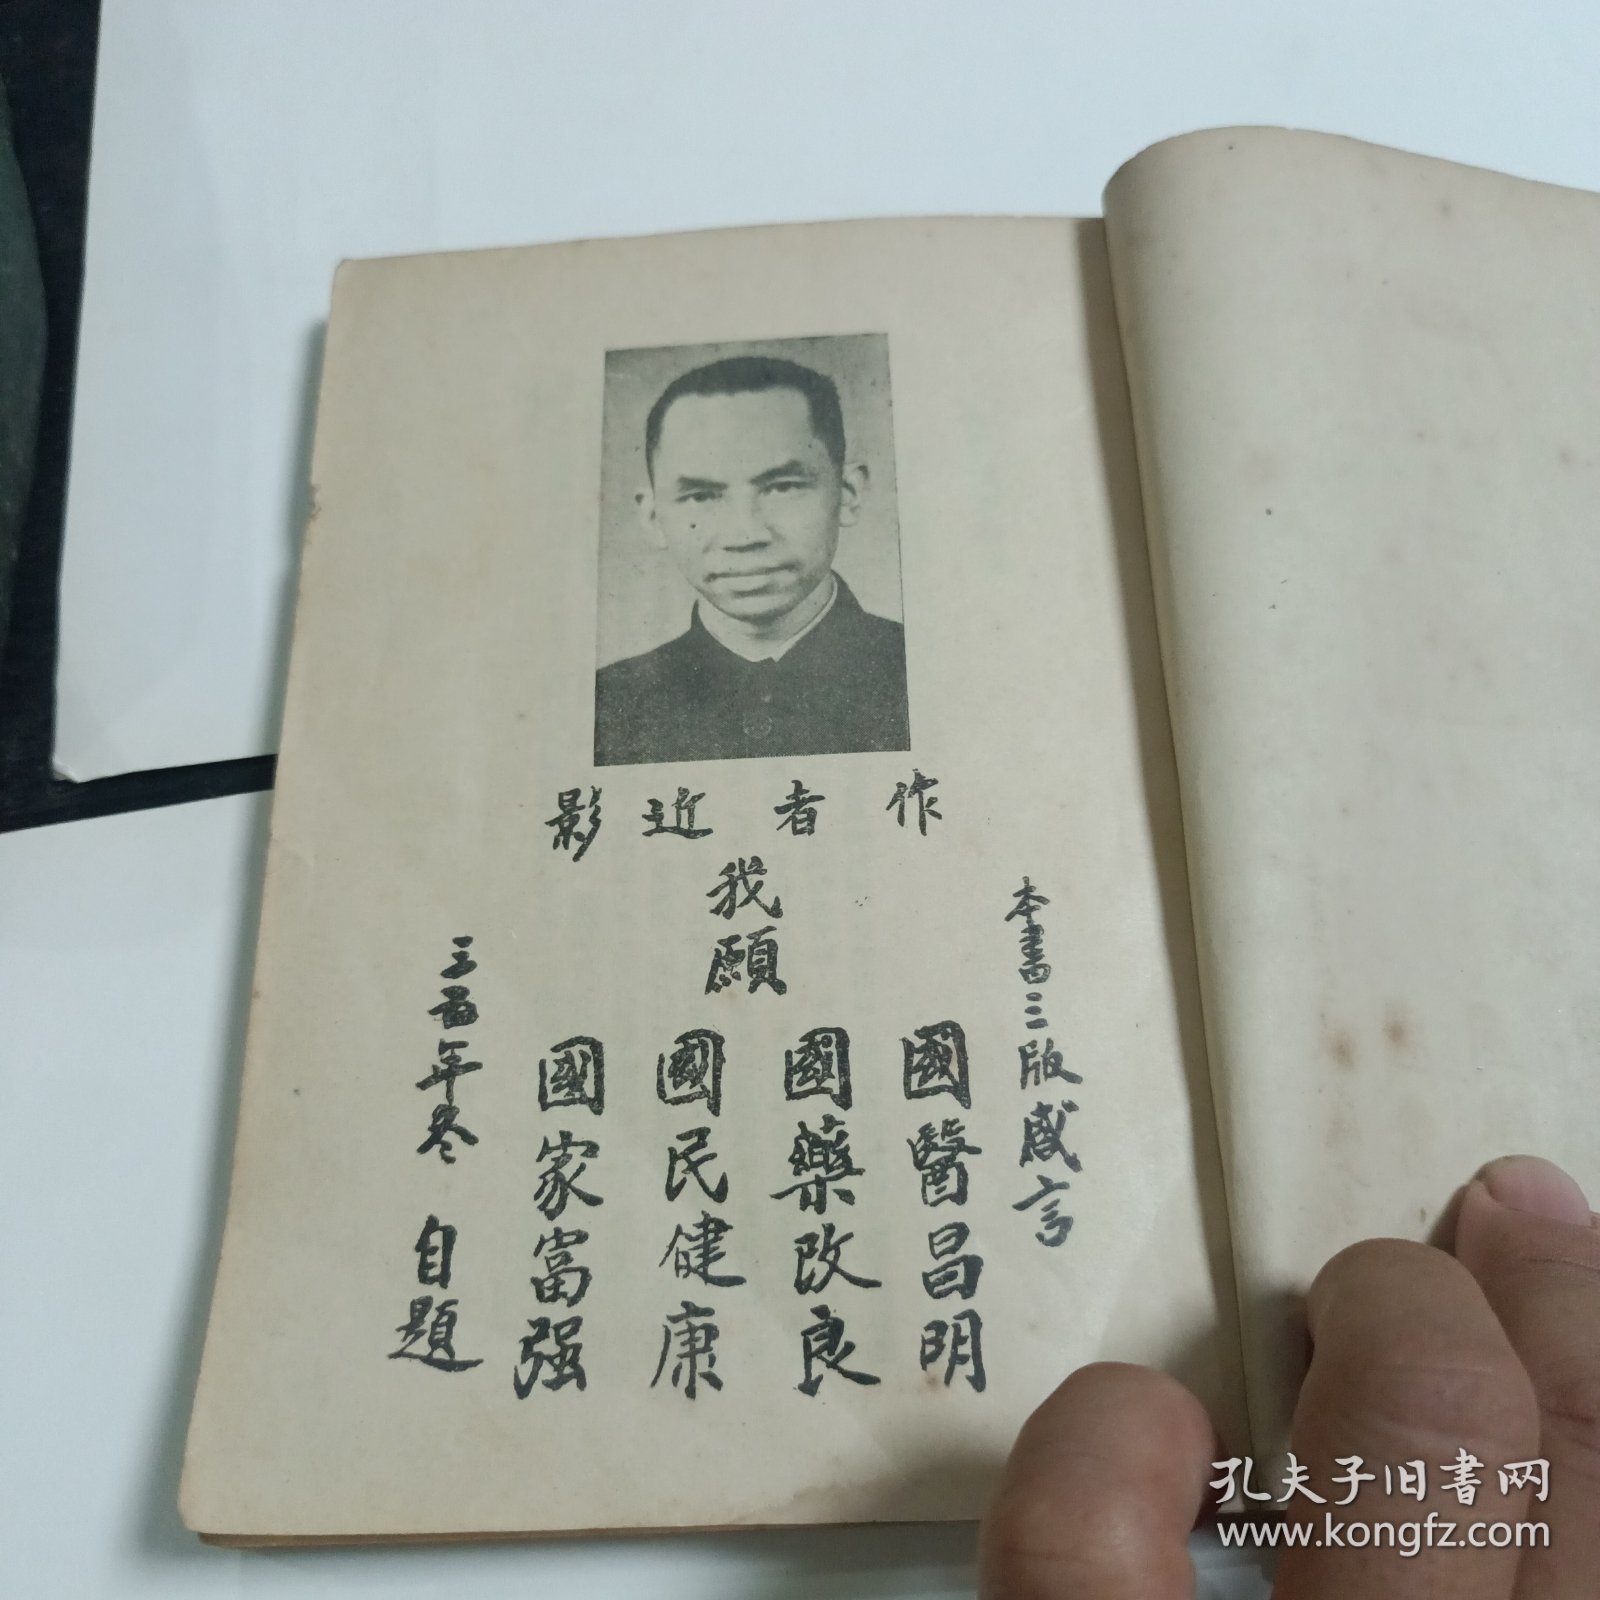 作者近影
本書三版感言
我願
國醫昌明
國藥改良
國民健康
國家富强
三五年冬 自題
孔夫子旧书网
www.kongfz.com